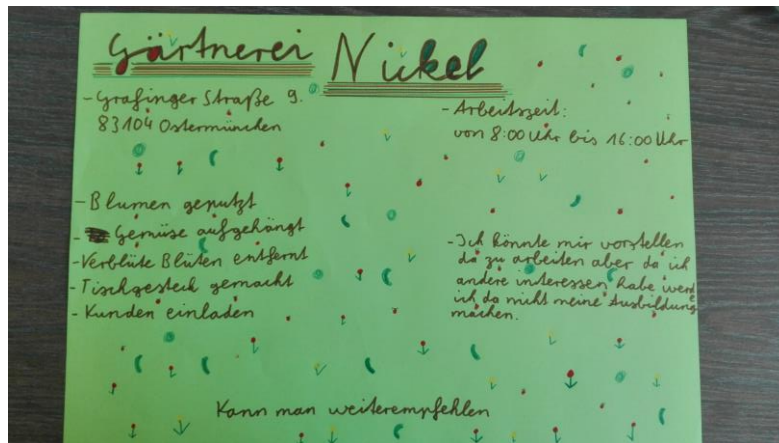 Gärtnerei Nickel
- Grafinger Straße 9.
83104 Ostermünchen
- Arbeitszeit:
von 8:00 Uhr bis 16:00 Uhr
- Blumen geputzt
- Gemüse aufgehängt
- Verblüte Blüten entfernt
- Tischgesteck gemacht
- Kunden einladen
- Ich könnte mir vorstellen
da zu arbeiten aber da ich
andere interessen habe werd
ich da nicht meine Ausbildung
machen.
Kann man weiterempfehlen